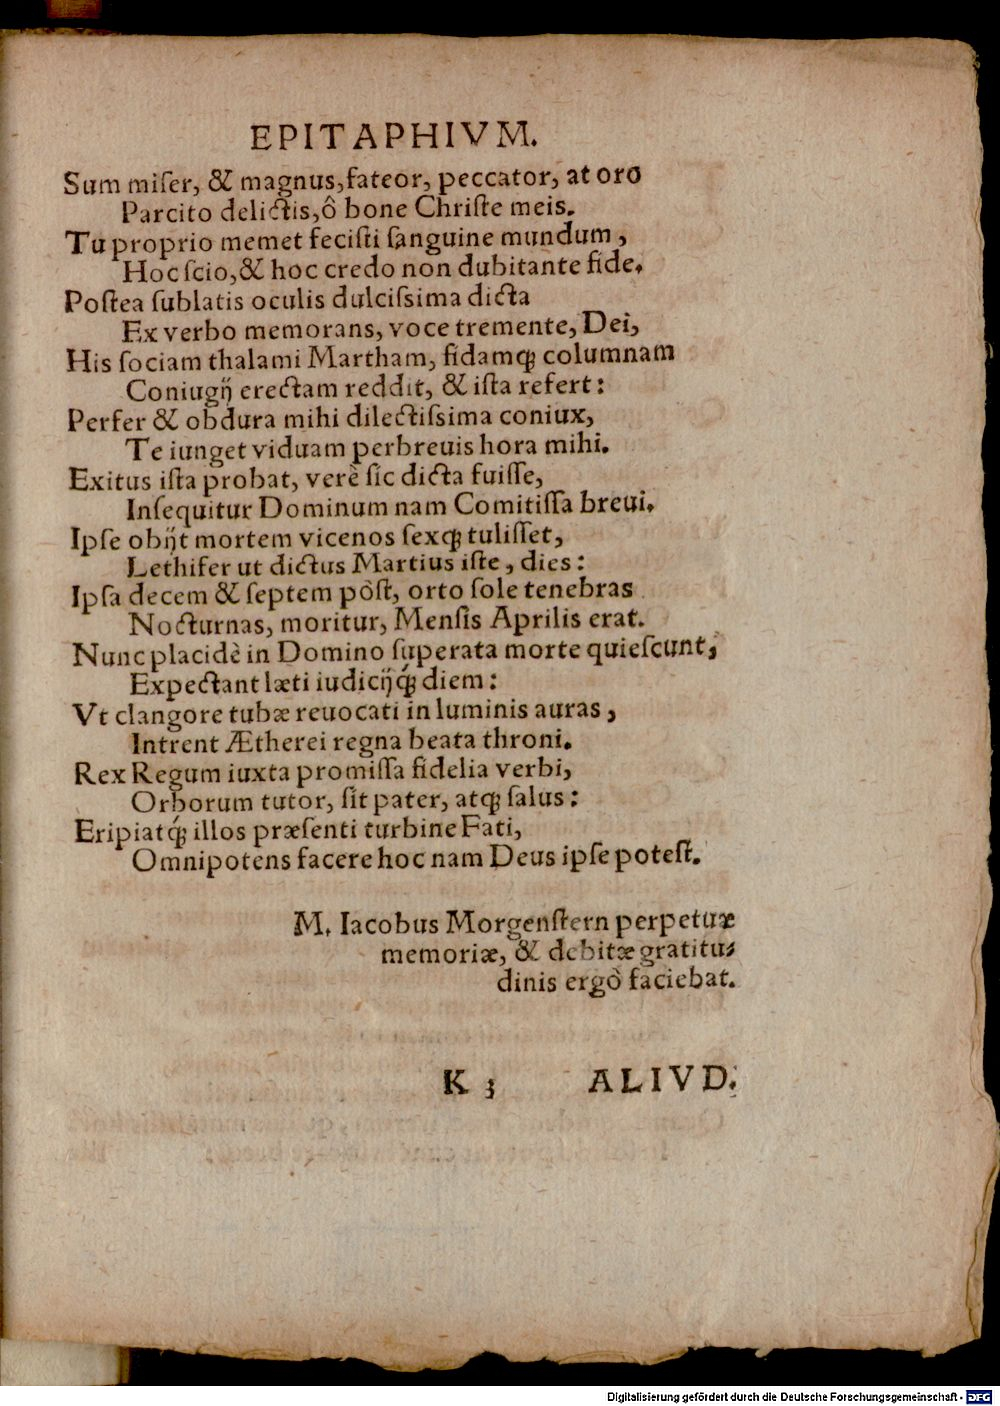 EPITAPHIVM.
Sum miſer, & magnus, fateor, peccator, at oro
Parcito delictis, ô bone Chriſte meis.
Tu proprio memet feciſti ſanguine mundum,
Hoc ſcio, & hoc credo non dubitante fide.
Poſtea ſublatis oculis dulciſsima dicta
Ex verbo memorans, voce tremente, Dei,
His ſociam thalami Martham, fidamq́; columnam
Coniugij erectam reddit, & iſta refert:
Perfer & obdura mihi dilectiſsima coniux,
Te iunget viduam perbreuis hora mihi.
Exitus iſta probat, verè ſic dicta fuiſſe,
Inſequitur Dominum nam Comitiſſa breui.
Ipſe obijt mortem vicenos ſexq; tuliſſet,
Lethifer ut dictus Martius iſte, dies:
Ipſa decem & ſeptem pòſt, orto ſole tenebras
Nocturnas, moritur, Menſis Aprilis erat.
Nunc placidè in Domino ſuperata morte quieſcunt,
Expectant læti iudicijq́; diem:
Vt clangore tubæ reuocati in luminis auras,
Intrent Ætherei regna beata throni.
Rex Regum iuxta promiſſa fidelia verbi,
Orborum tutor, ſit pater, atq; ſalus:
Eripiatq́; illos præſenti turbine Fati,
Omnipotens facere hoc nam Deus ipſe poteſt.
M. Iacobus Morgenſtern perpetuæ
memoriæ, & debitæ gratitu-
dinis ergò faciebat.
K 3 ALIVD.
Digitalisierung gefördert durch die Deutsche Forschungsgemeinschaft - DFG